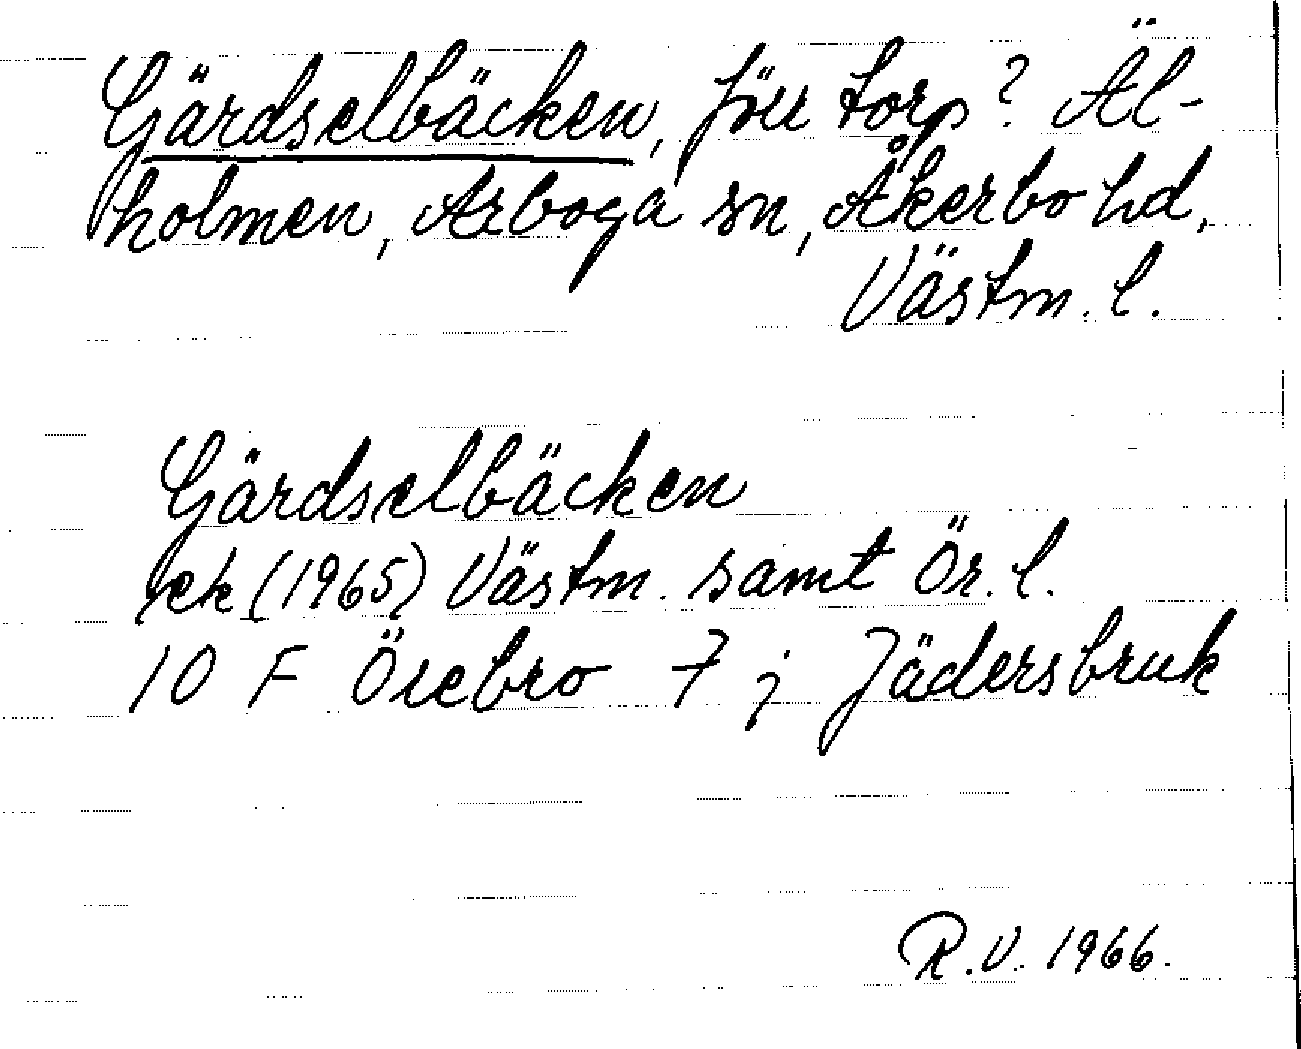 Gärdselbäcken, förr torp? Äl-
holmen, Arboga sn, Åkerbo hd,
Västm. l.
Gärdselbäcken
ek (1965) Västm. samt Ör. l.
10 F Örebro 7 j Jädersbruk
R.V. 1966.